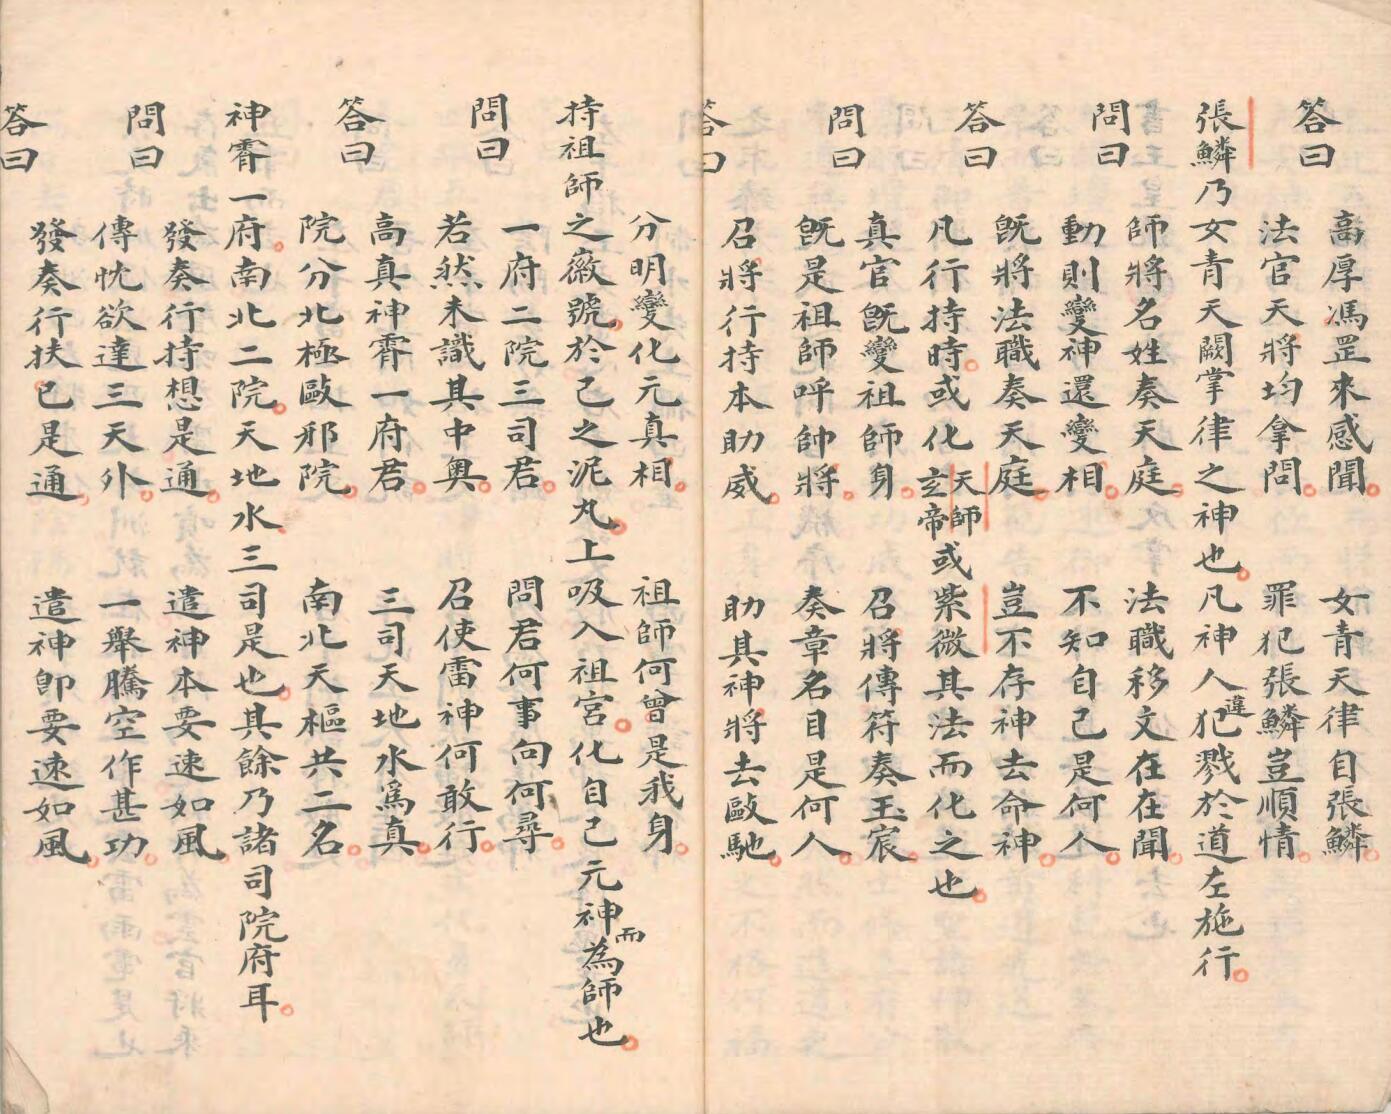 答曰 高厚馮罡來感聞。 女青天律自張鱗。
法官天將均拿問。 罪犯張鱗豈順情。
張鱗乃女青天闕掌律之神也。凡神人違犯戮於道左施行。
師將名姓奏天庭。 法職移文在在聞。
問曰 動則變神還變相。 不知自己是何人。
既將法職奏天庭。 豈不存神去命神。
答曰 凡行持時。或化天師玄帝或紫微其法而化之也。
真官既變祖師身。 召將傳符奏玉宸。
問曰 既是祖師呼帥將。 奏章名目是何人。
召將行持本助威。 助其神將去歐馳。
答曰 分明變化元真相。 祖師何曾是我身。
持祖師之徽號。於己之泥丸。上吸入祖宮。化自己元神而為師也。
問曰 一府二院三司君。 問君何事向何尋。
若然未識其中奧。 召使雷神何敢行。
答曰 高真神霄一府君。 三司天地水為真。
院分北極歐邪院。 南北天樞共二名。
神霄一府。南北二院。天地水三司是也。其餘乃諸司院府耳。
問曰 發奏行持想是通。 遣神本要速如風。
傳忱欲達三天外。 一舉騰空作甚功。
答曰 發奏行扶。已是通。 遣神卽要速如風。